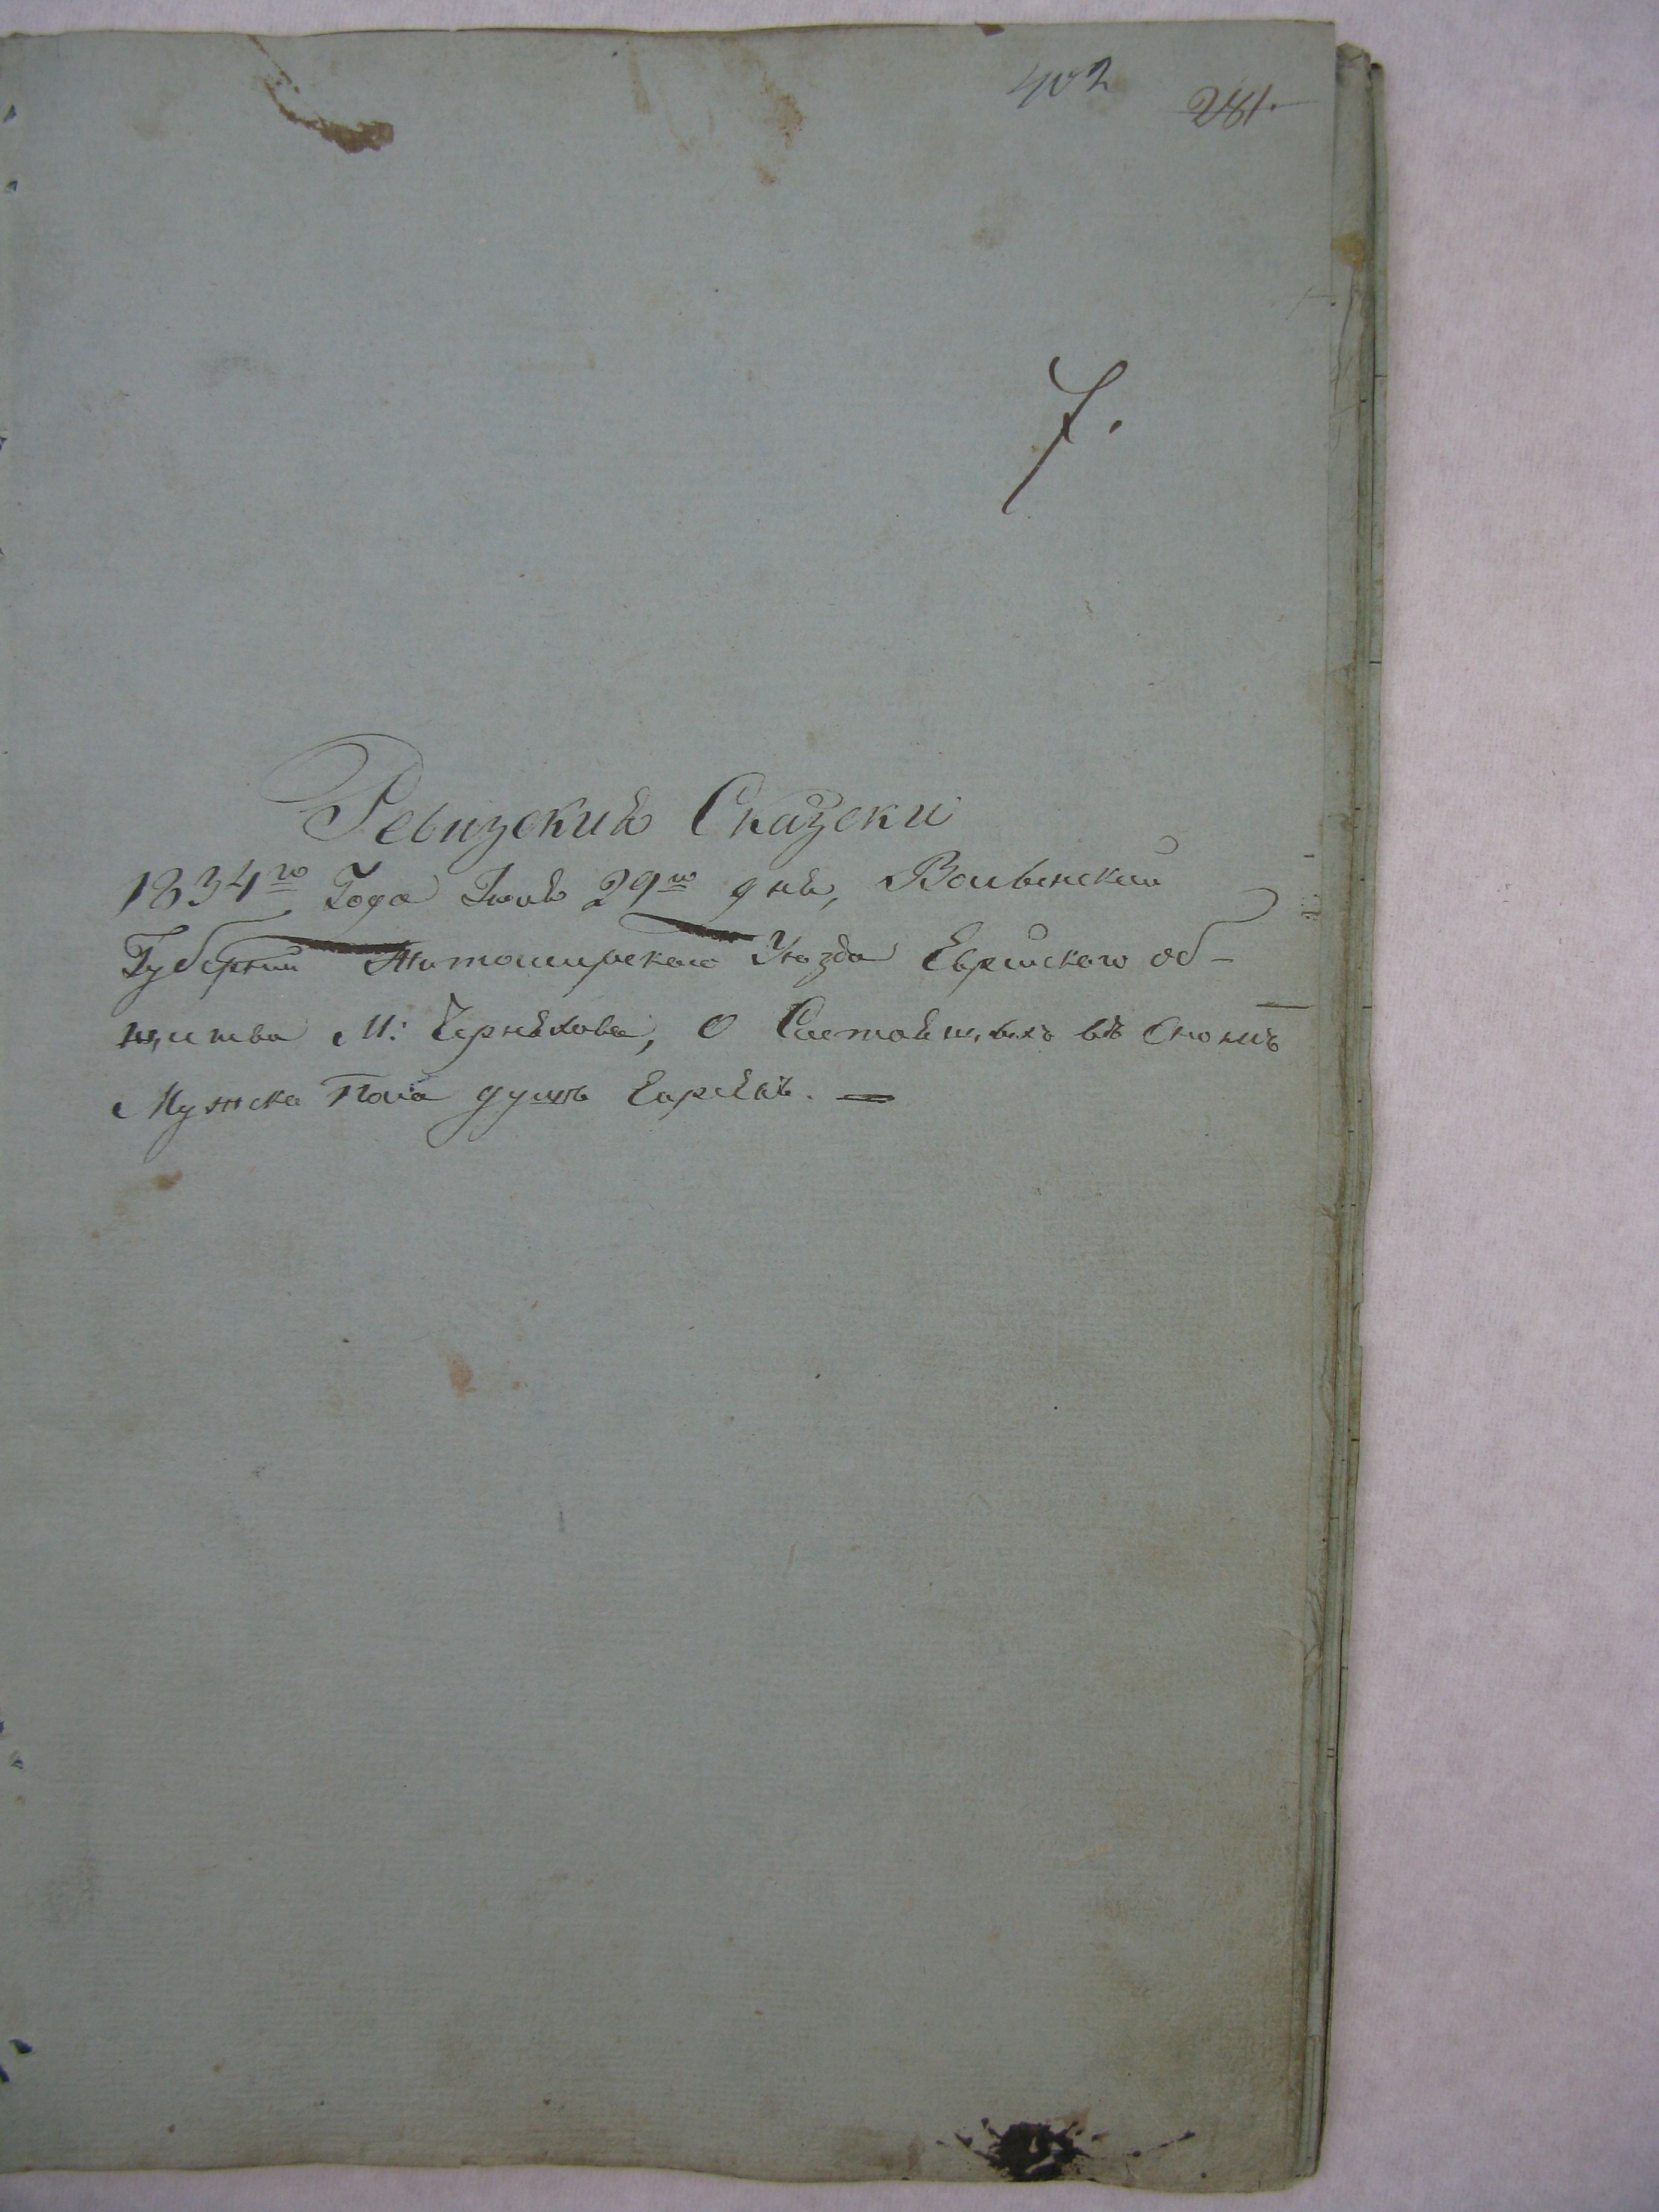 402 281.
7.
Ревизскиѣ Сказски
1834го Года Июнѣ 29го днѣ, Волынской
Губерний Житомирского Уезда Еврейского об-
щитва М: Чернѣхова, О Состоѣщыхъ въ Ономъ
Мужска Пола душъ Еврѣевъ. —